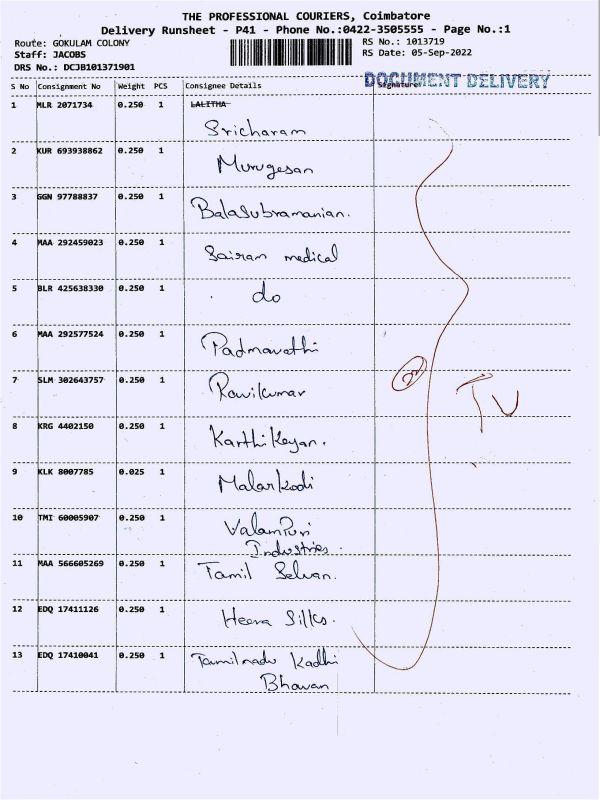 THE PROFESSIONAL COURIERS, Coimbatore
Delivery Runsheet - P41 - Phone No.:0422-3505555 - Page No.:1
Route: GOKULAM COLONY
Staff: JACOBS
DRS No.: DCJB101371901
RS No.: 1013719
RS Date: 05-Sep-2022
DOCUMENT DELIVERY
S No Consignment No Weight PCS Consignee Details Signature
1 MLR 2071734 0.250 1 LALITHA
Sricharam
2 KUR 693938862 0.250 1
Murugesan
3 GGN 97788837 0.250 1
Balasubramanian.
4 MAA 292459023 0.250 1
Sairam medical
5 BLR 425638330 0.250 1
do
6 MAA 292577524 0.250 1
Padmavathi
7 SLM 302643757 0.250 1
Ravikumar
8 KRG 4402150 0.250 1
Karthikeyan.
9 KLK 8007785 0.025 1
Malarkodi
10 TMI 60005907 0.250 1
Valampuri
Industries.
11 MAA 566605269 0.250 1
Tamil Selvan.
12 EDQ 17411126 0.250 1
Heera Silks.
13 EDQ 17410041 0.250 1
Tamilnadu Kadhi
Bhavan